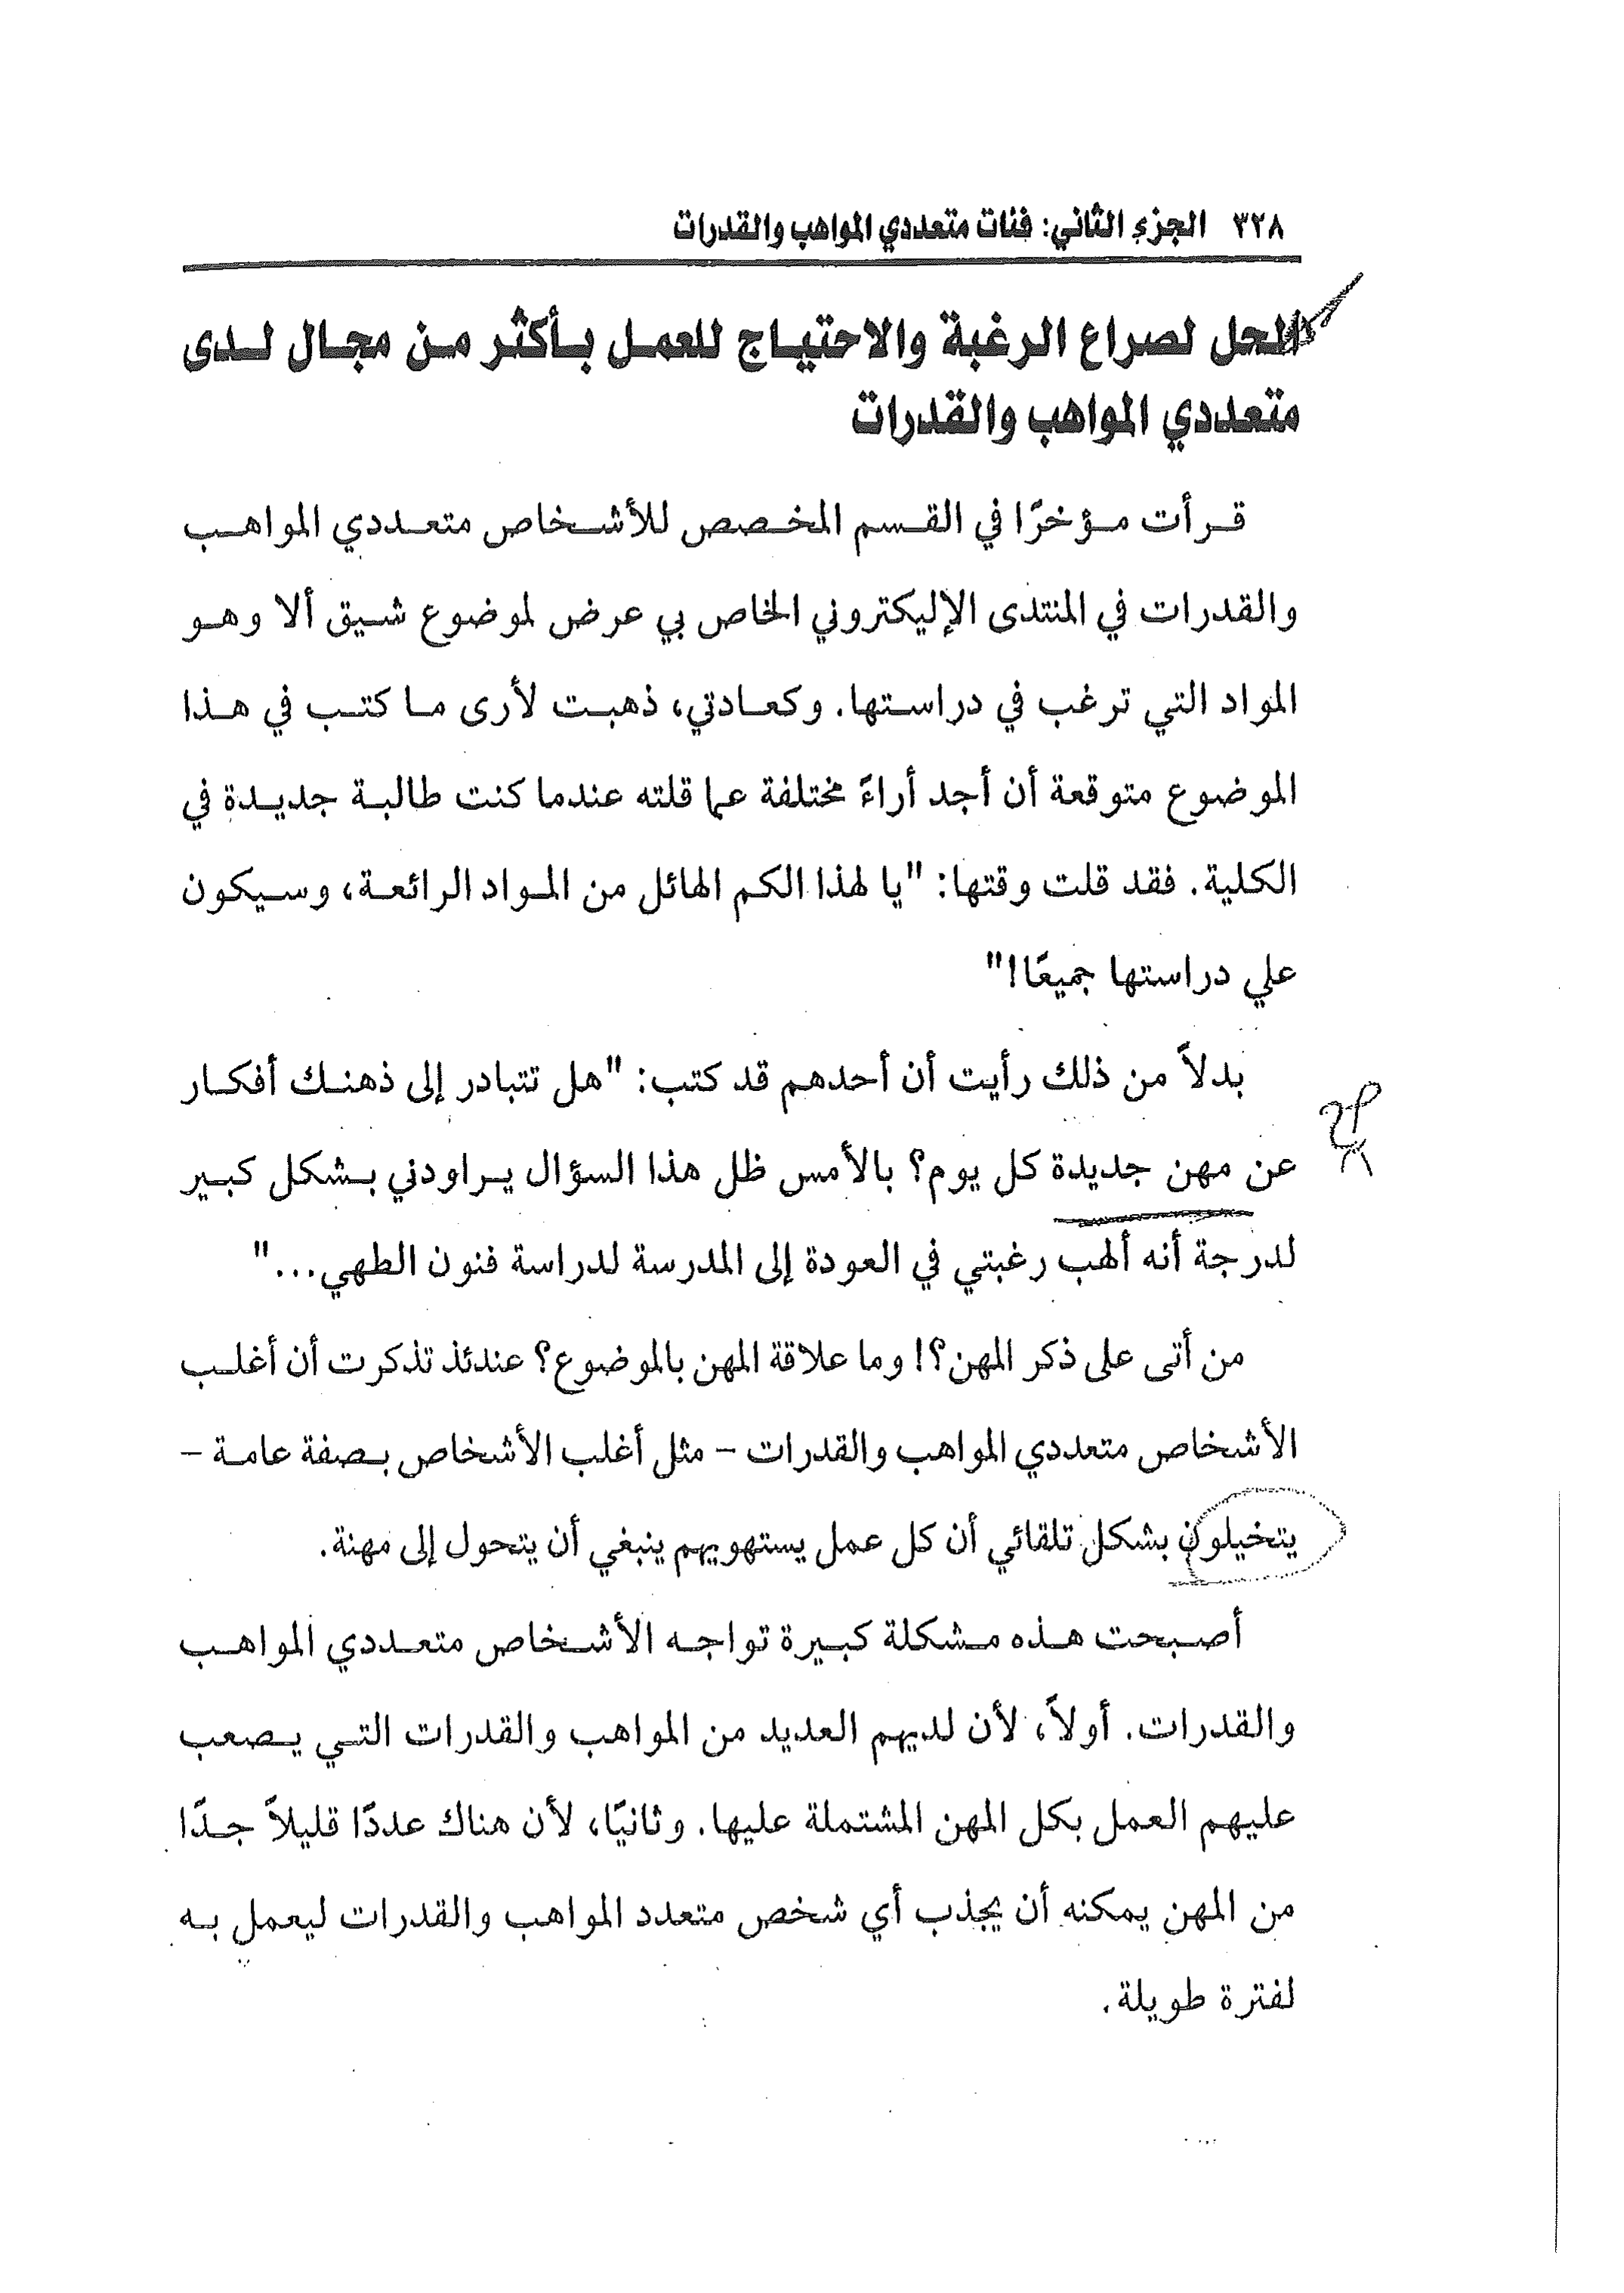 ٣٢٨ الجزء الثاني: فئات متعددي المواهب والقدرات
الحل لصراع الرغبة والاحتياج للعمل بأكثر من مجال لدى
متعددي المواهب والقدرات
قرأت مؤخرًا في القسم المخصص للأشخاص متعددي المواهب
والقدرات في المنتدى الإليكتروني الخاص بي عرض لموضوع شيق ألا وهو
المواد التي ترغب في دراستها. وكعادتي، ذهبت لأرى ما كتب في هذا
الموضوع متوقعة أن أجد أراءً مختلفة عما قلته عندما كنت طالبة جديدة في
الكلية. فقد قلت وقتها: "يا لهذا الكم الهائل من المواد الرائعة، وسيكون
علي دراستها جميعًا!"
بدلاً من ذلك رأيت أن أحدهم قد كتب: "هل تتبادر إلى ذهنك أفكار
عن مهن جديدة كل يوم؟ بالأمس ظل هذا السؤال يراودني بشكل كبير
لدرجة أنه ألهب رغبتي في العودة إلى المدرسة لدراسة فنون الطهي..."
من أتى على ذكر المهن؟! وما علاقة المهن بالموضوع؟ عندئذ تذكرت أن أغلب
الأشخاص متعددي المواهب والقدرات – مثل أغلب الأشخاص بصفة عامة –
يتخيلون بشكل تلقائي أن كل عمل يستهويهم ينبغي أن يتحول إلى مهنة.
أصبحت هذه مشكلة كبيرة تواجه الأشخاص متعددي المواهب
والقدرات. أولاً، لأن لديهم العديد من المواهب والقدرات التي يصعب
عليهم العمل بكل المهن المشتملة عليها. وثانيًا، لأن هناك عددًا قليلاً جدًا
من المهن يمكنه أن يجذب أي شخص متعدد المواهب والقدرات ليعمل به
لفترة طويلة.